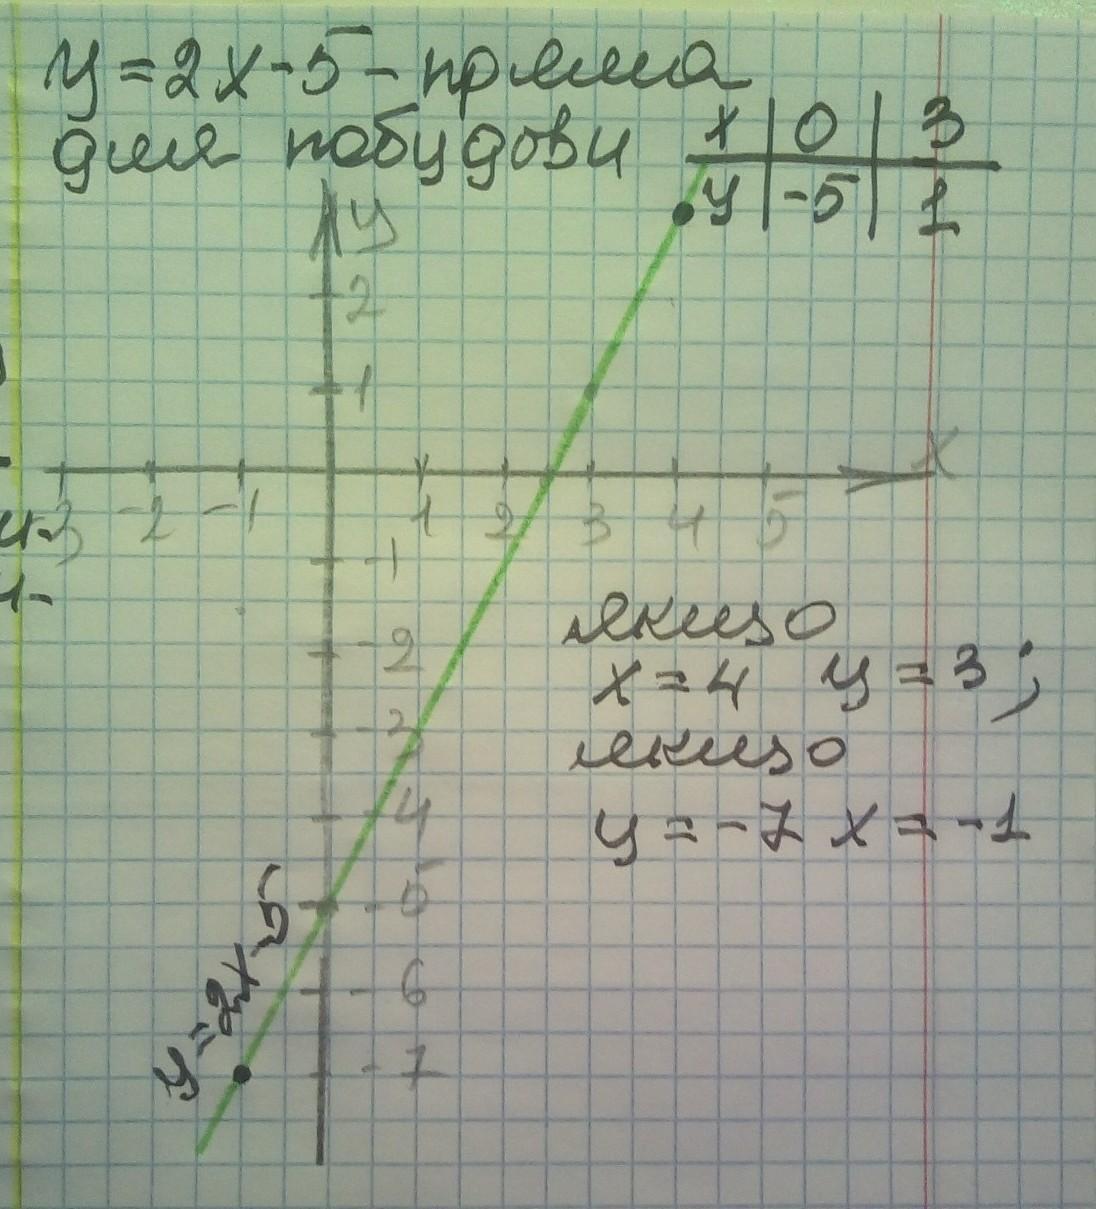 y = 2x - 5 - пряма
для побудови
x | 0 | 3
y | -5 | 1
y
2
1
x
-3 -2 -1 1 2 3 4 5
-1
-2
-3
-4
-5
-6
-7
y = 2x - 5
якщо
x = 4 y = 3 ;
якщо
y = -7 x = -1